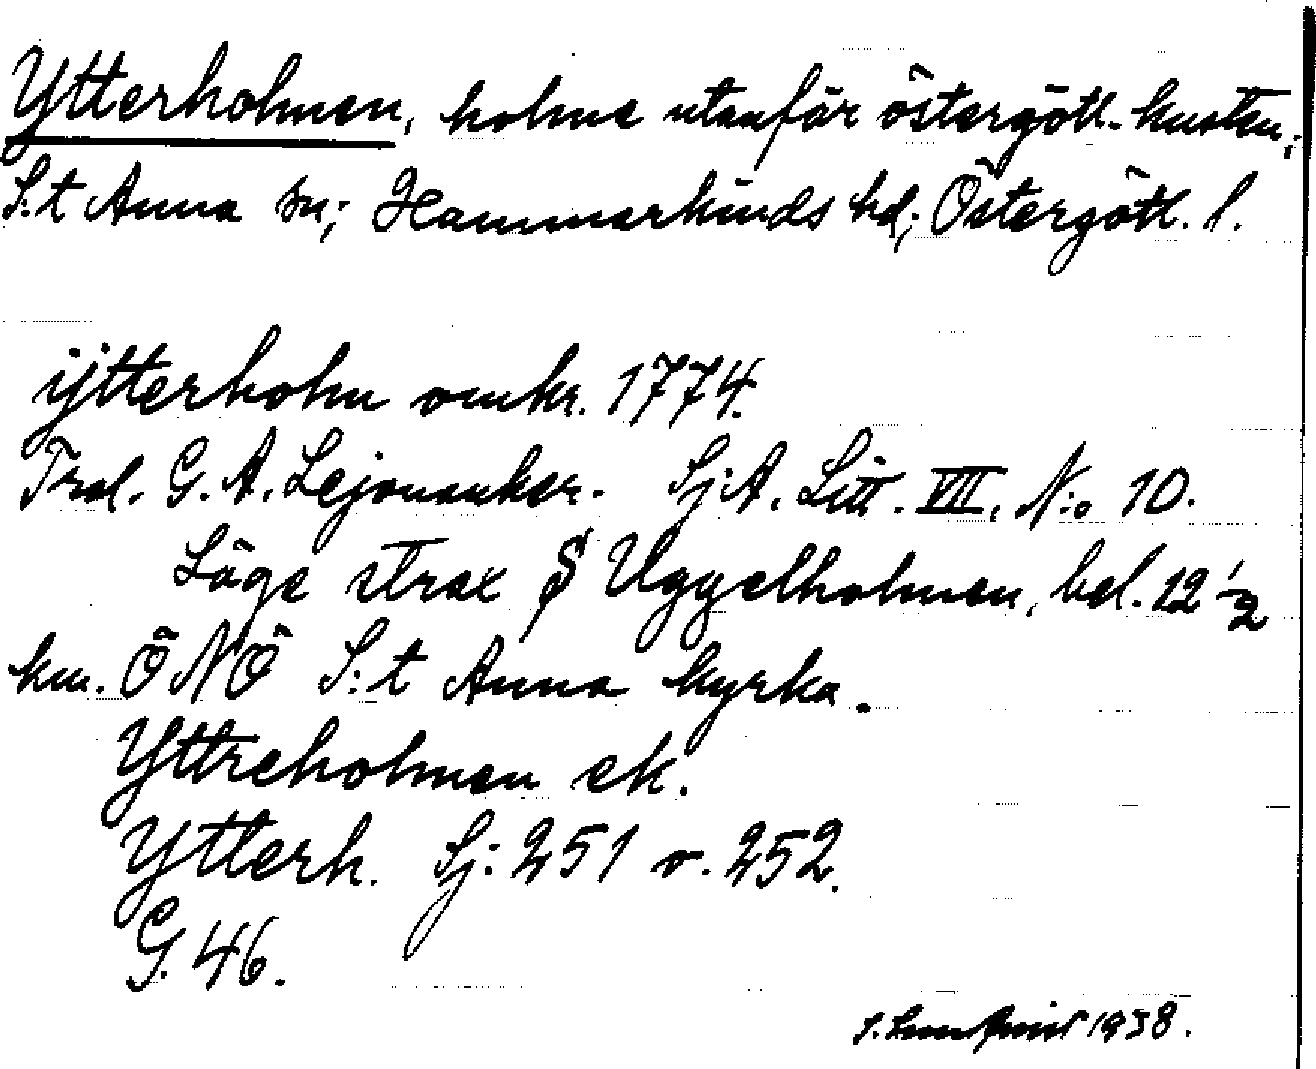 Ytterholmen, holme utanför östergötl. kusten;
S:t Anna sn; Hammarkinds hd; Östergötl. l.
ÿtterholm omkr. 1774.
Trol. G. A. Lejonanker. Sj:A. Litt. VII. N:o 10.
Läge strax S Uggelholmen, bel. 12 1/2
km. ÖNÖ S:t Anna kyrka.
Yttreholmen ek.
Ytterh. Sj: 251 o. 252.
G. 46.
1938.